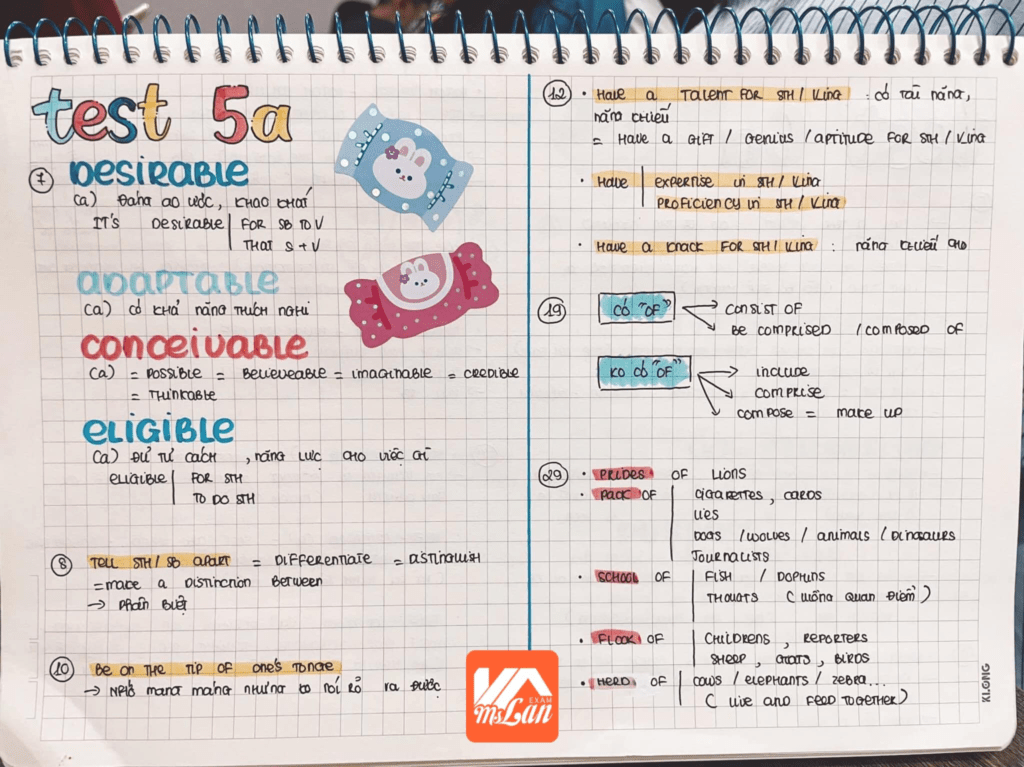 test 5a
7 DESIRABLE
(a) Đáng ao ước, khao khát
IT'S DESIRABLE | FOR SB TO V
THAT S + V
ADAPTABLE
(a) có khả năng thích nghi
CONCEIVABLE
(a) = POSSIBLE = BELIEVEABLE = IMAGINABLE = CREDIBLE
= THINKABLE
ELIGIBLE
(a) Đủ tư cách, năng lực cho việc gì
ELIGIBLE | FOR STH
TO DO STH
8 TELL STH/ SB APART = DIFFERENTIATE = DISTINGUISH
= MAKE A DISTINCTION BETWEEN
→ Phân biệt
10 BE ON THE TIP OF ONE'S TONGE
→ Nhớ mang máng nhưng ko nói rõ ra được
12 • HAVE A TALENT FOR STH / VING : có tài năng,
năng khiếu
= HAVE A GIFT / GENIUS / APTITUDE FOR STH / VING
• HAVE | EXPERTISE IN STH / VING
PROFICIENCY IN STH / VING
• HAVE A KNACK FOR STH / VING : năng khiếu cho
19 CÓ "OF" → CONSIST OF
→ BE COMPRISED / COMPOSED OF
KO CÓ "OF" → INCLUDE
→ COMPRISE
→ COMPOSE = MAKE UP
29 • PRIDES OF LIONS
• PACK OF | CIGARETTES, CARDS
LIES
DOGS / WOLVES / ANIMALS / DINOSAURS
JOURNALISTS
• SCHOOL OF | FISH / DOPHINS
THOUGTS (luồng quan điểm)
• FLOCK OF | CHILDRENS, REPORTERS
SHEEP, GOATS, BIRDS
• HERD OF | COWS / ELEPHANTS / ZEBRA...
(LIVE AND FEED TOGETHER)
KLONG
EXAM
MsLan